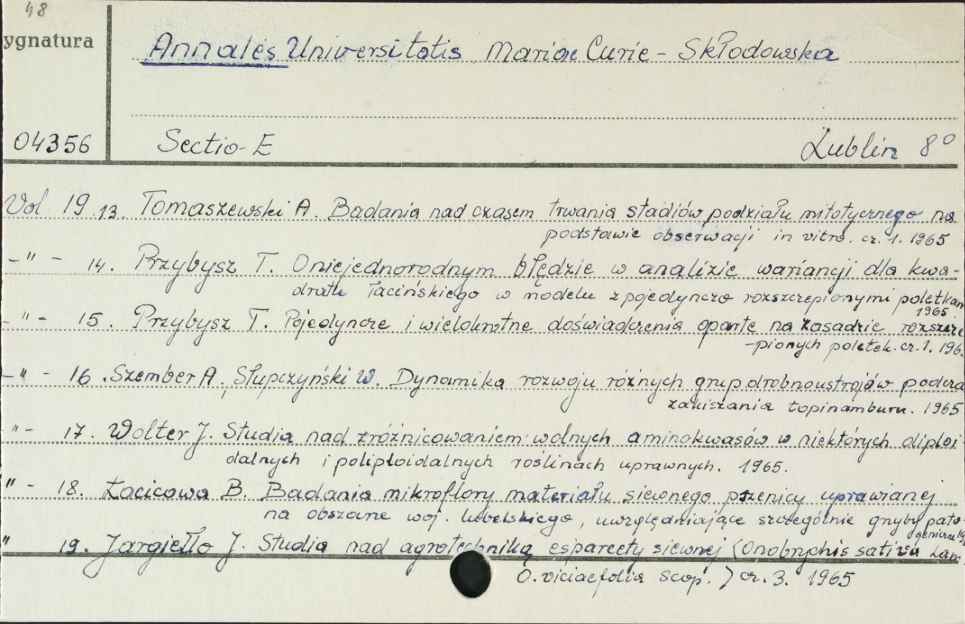 48
ygnatura
Annales Universitatis Mariae Curie - Skłodowska
04356 Sectio-E Lublin 8°
Vol 19. 13. Tomaszewski A. Badania nad czasem trwania stadiów podziału mitotycznego na
podstawie obserwacji in vitro. cz. 1. 1965
-"- 14. Przybysz T. O niejednorodnym błędzie w analizie wariancji dla kwa-
dratu łacińskiego w modelu z pojedynczo rozszczepionymi poletkam
1965
-"- 15. Przybysz T. Pojedyncze i wielokrotne doświadczenia oparte na zasadzie rozszcze
-pionych poletek. cz. 1. 196
-"- 16. Szember A. Słupczyński W. Dynamika rozwoju różnych grup drobnoustrojów podcza
zakiszania topinamburu. 1965
"- 17. Wolter J. Studia nad zróżnicowaniem wolnych aminokwasów w niektórych diploi-
dalnych i poliploidalnych roślinach uprawnych. 1965.
"- 18. Łacicowa B. Badania mikroflory materiału siewnego pszenicy uprawianej
na obszarze woj. lubelskiego, uwzględniające szczególnie grzyby pato
" 19. Jargiełło J. Studia nad agrotechniką esparcety siewnej (Onobryhis sativa Lam.
O. viciaefolia scop.) cz. 3. 1965